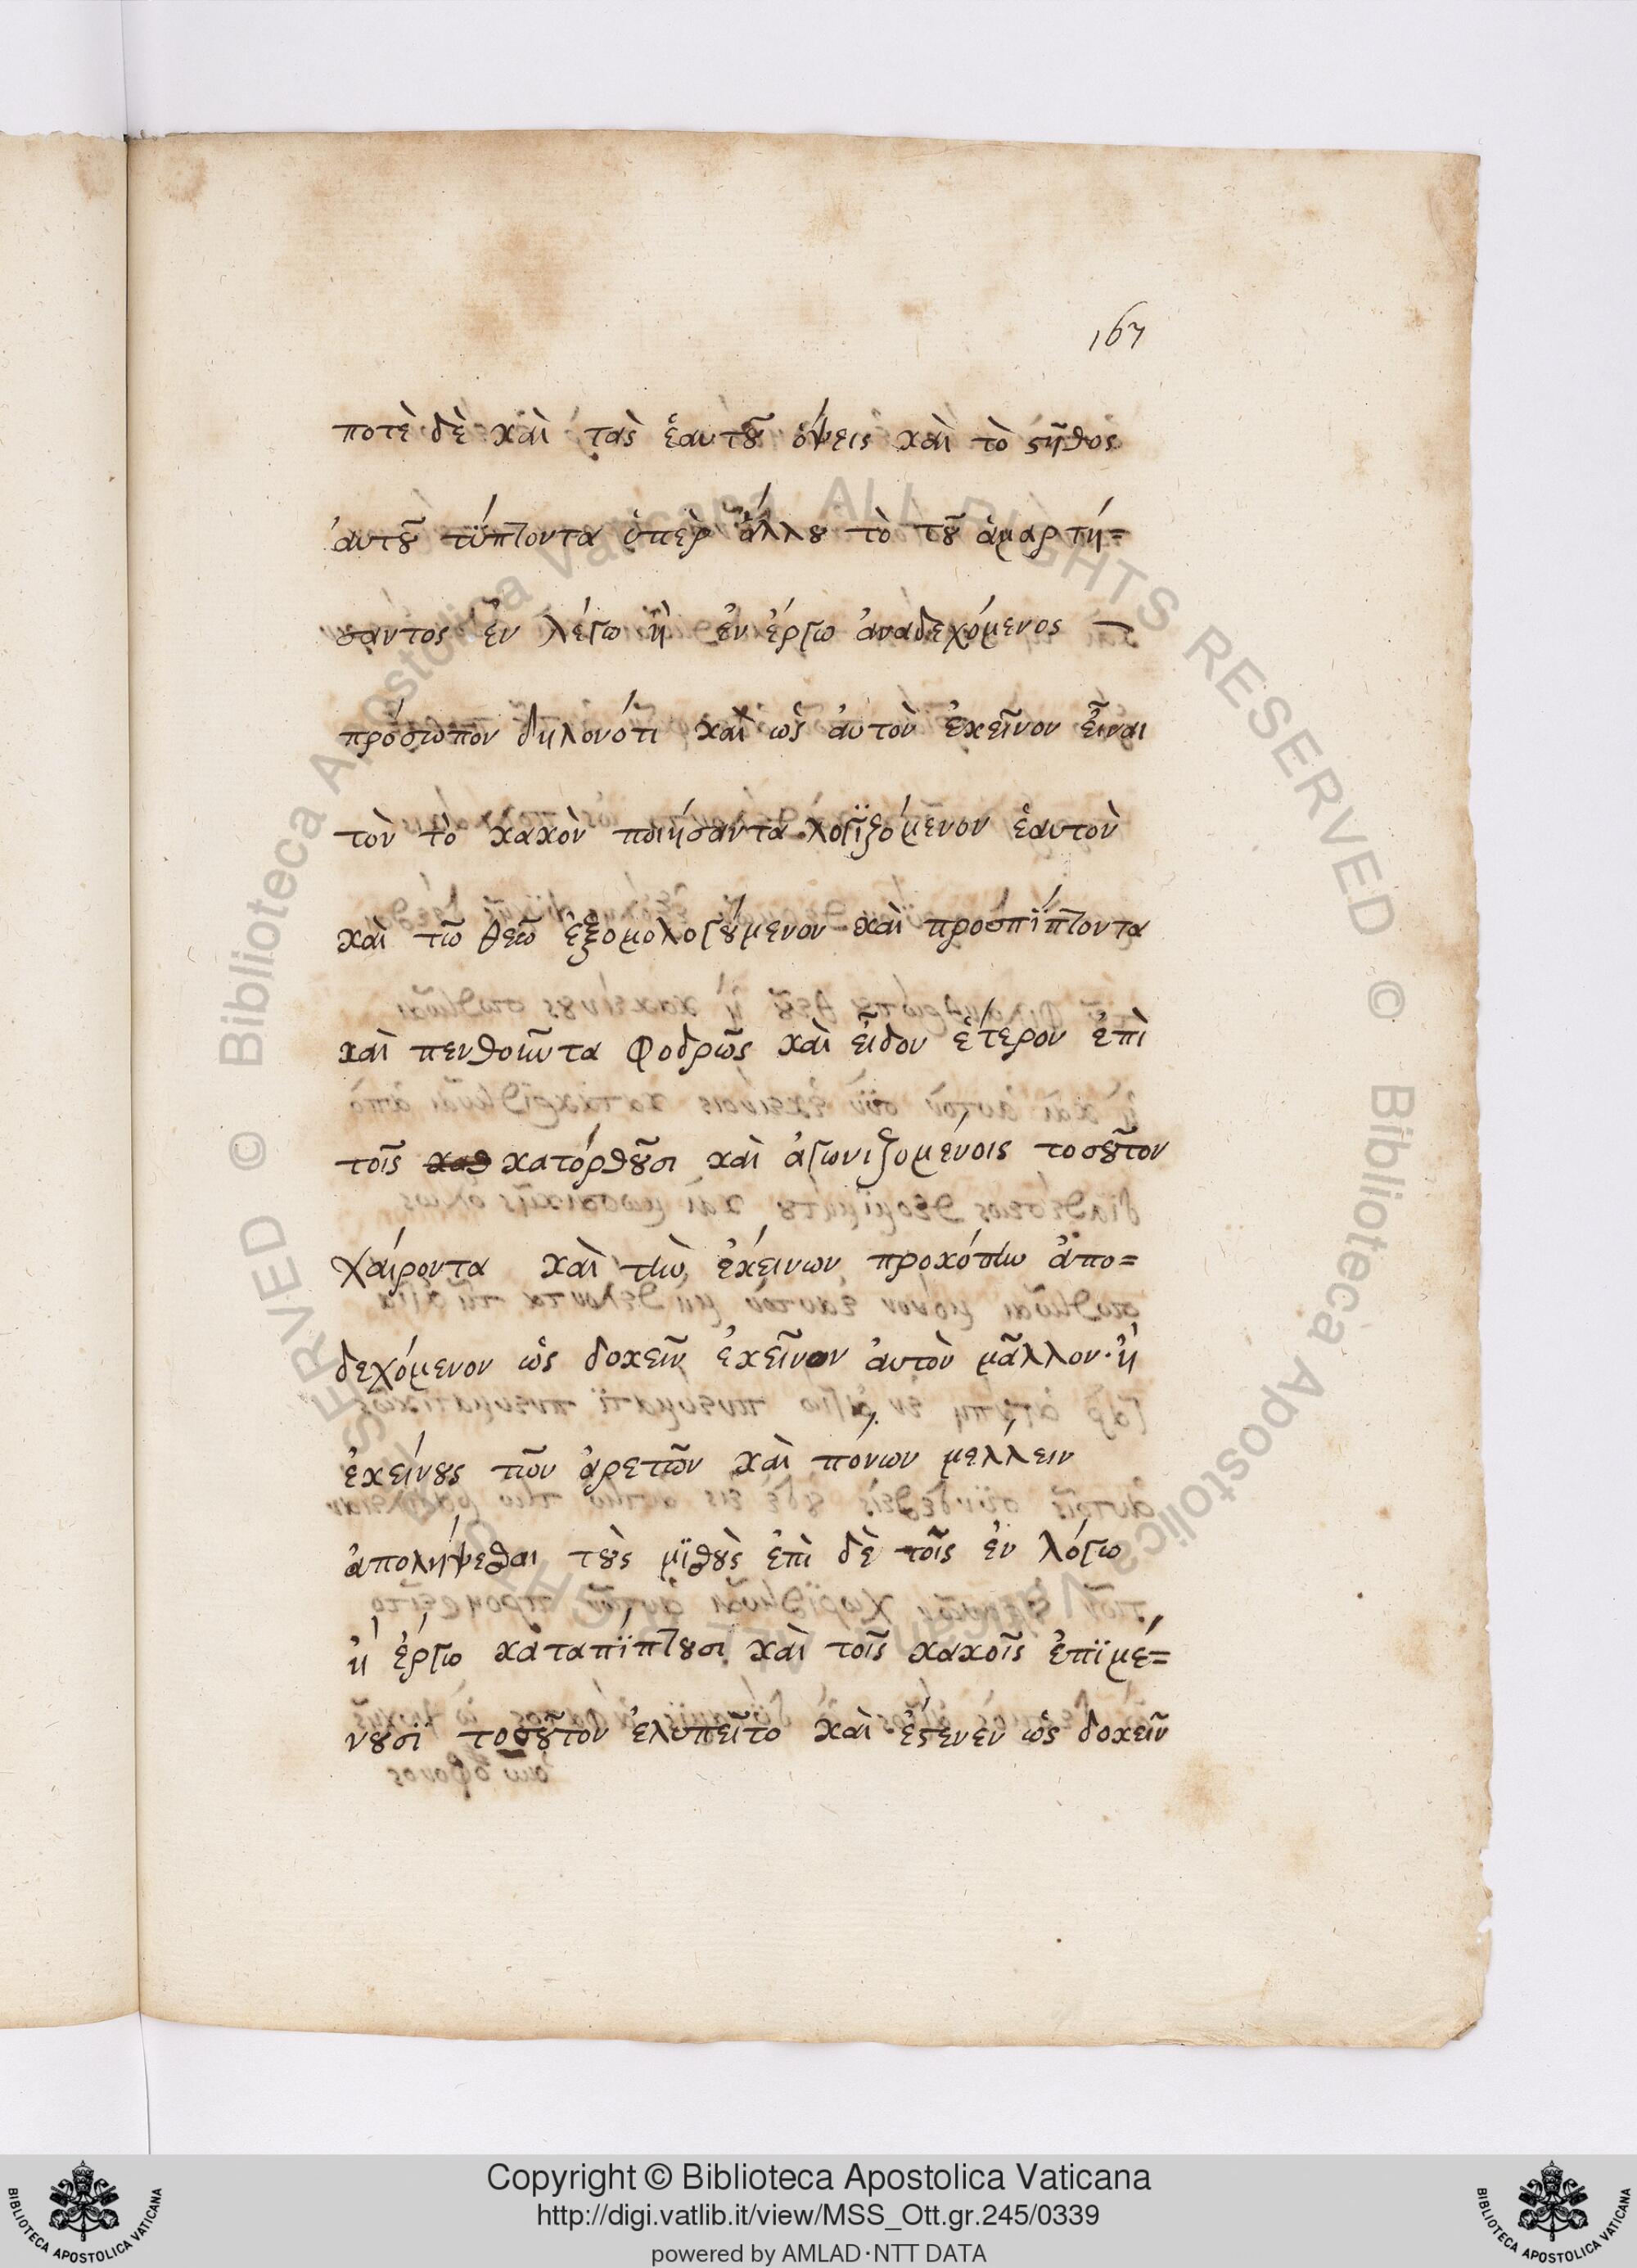 167
ποτὲ δὲ καὶ τὰς ἑαυτȣ͂ ὄψεις καὶ τὸ ϛῆθος
ἀυτȣ͂ τύπτοντα ὑπὲρ ἄλλȣ τὸ τȣ͂ ἁμαρτή=
σαντος ἐν λέγω ἢ ἐν ἔργω ἀναδεχόμενος
πρόσωπον δηλονότι καὶ ὡς ἀυτὸν ἐκεῖνον εἶναι
τὸν τὸ κακὸν ποιήσαντα λογϊζόμενον ἑαυτὸν
καὶ τῶ θεῶ ἐξομολογȣ́μενον καὶ προσπίπτοντα
καὶ πενθοῦντα σφοδρῶς καὶ εἶδον ἕτερον ἐπὶ
τοῖς κατόρθȣσι καὶ ἀγωνιζομένοις τοσȣ͂τον
χαίροντα καὶ τὴν ἐκείνων προκόπὴν ἀπο=
δεχόμενον ὡς δοκεῖν ἐκεῖνον ἀυτὸν μᾶλλον· ἢ
ἐκείνȣς τῶν ἀρετῶν καὶ πόνων μελλειν
ἀπολήψεσθαι τȣ̀ς μϊσθȣ̀ς ἐπὶ δὲ τοῖς ἐν λόγω
ἢ ἔργω καταπίπτȣσι καὶ τοῖς κακοῖς ἐπϊμέ=
νȣσϊ τοσȣ͂τον ἐλυπεῖτο καὶ ἔϛενεν ὡς δοκεῖν
Copyright © Biblioteca Apostolica Vaticana
http://digi.vatlib.it/view/MSS_Ott.gr.245/0339
powered by AMLAD·NTT DATA
BIBLIOTECA APOSTOLICA VATICANA
BIBLIOTECA APOSTOLICA VATICANA
© Biblioteca Apostolica Vaticana ALL RIGHTS RESERVED © Biblioteca Apostolica Vaticana ALL RIGHTS RESERVED